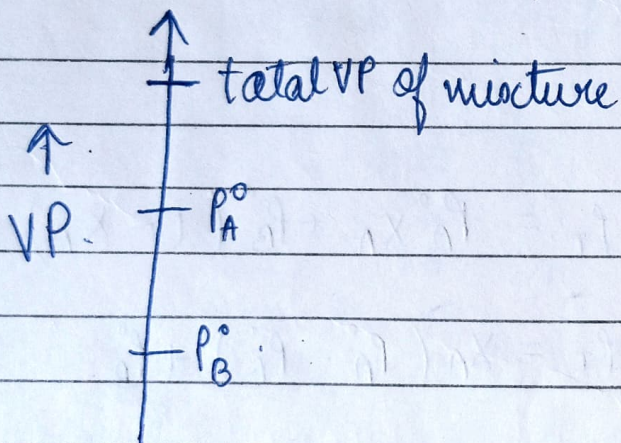 total VP of mixture
↑
P°A
VP.
P°B